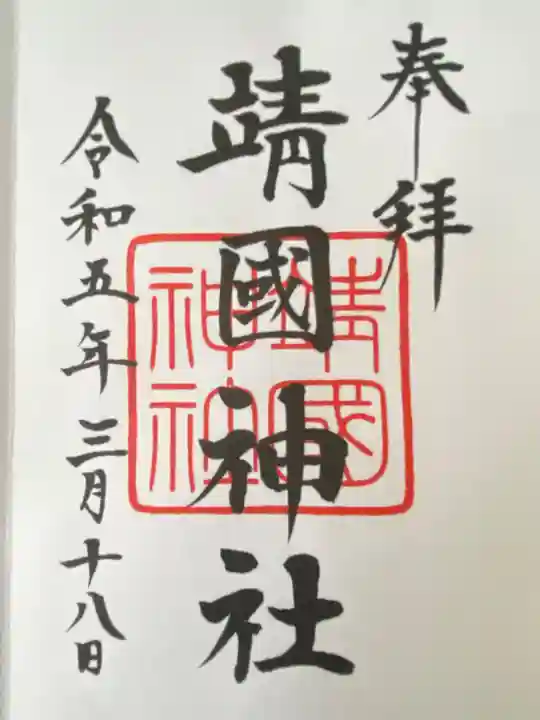 奉拝
靖國神社
靖國
神社
令和五年三月十八日